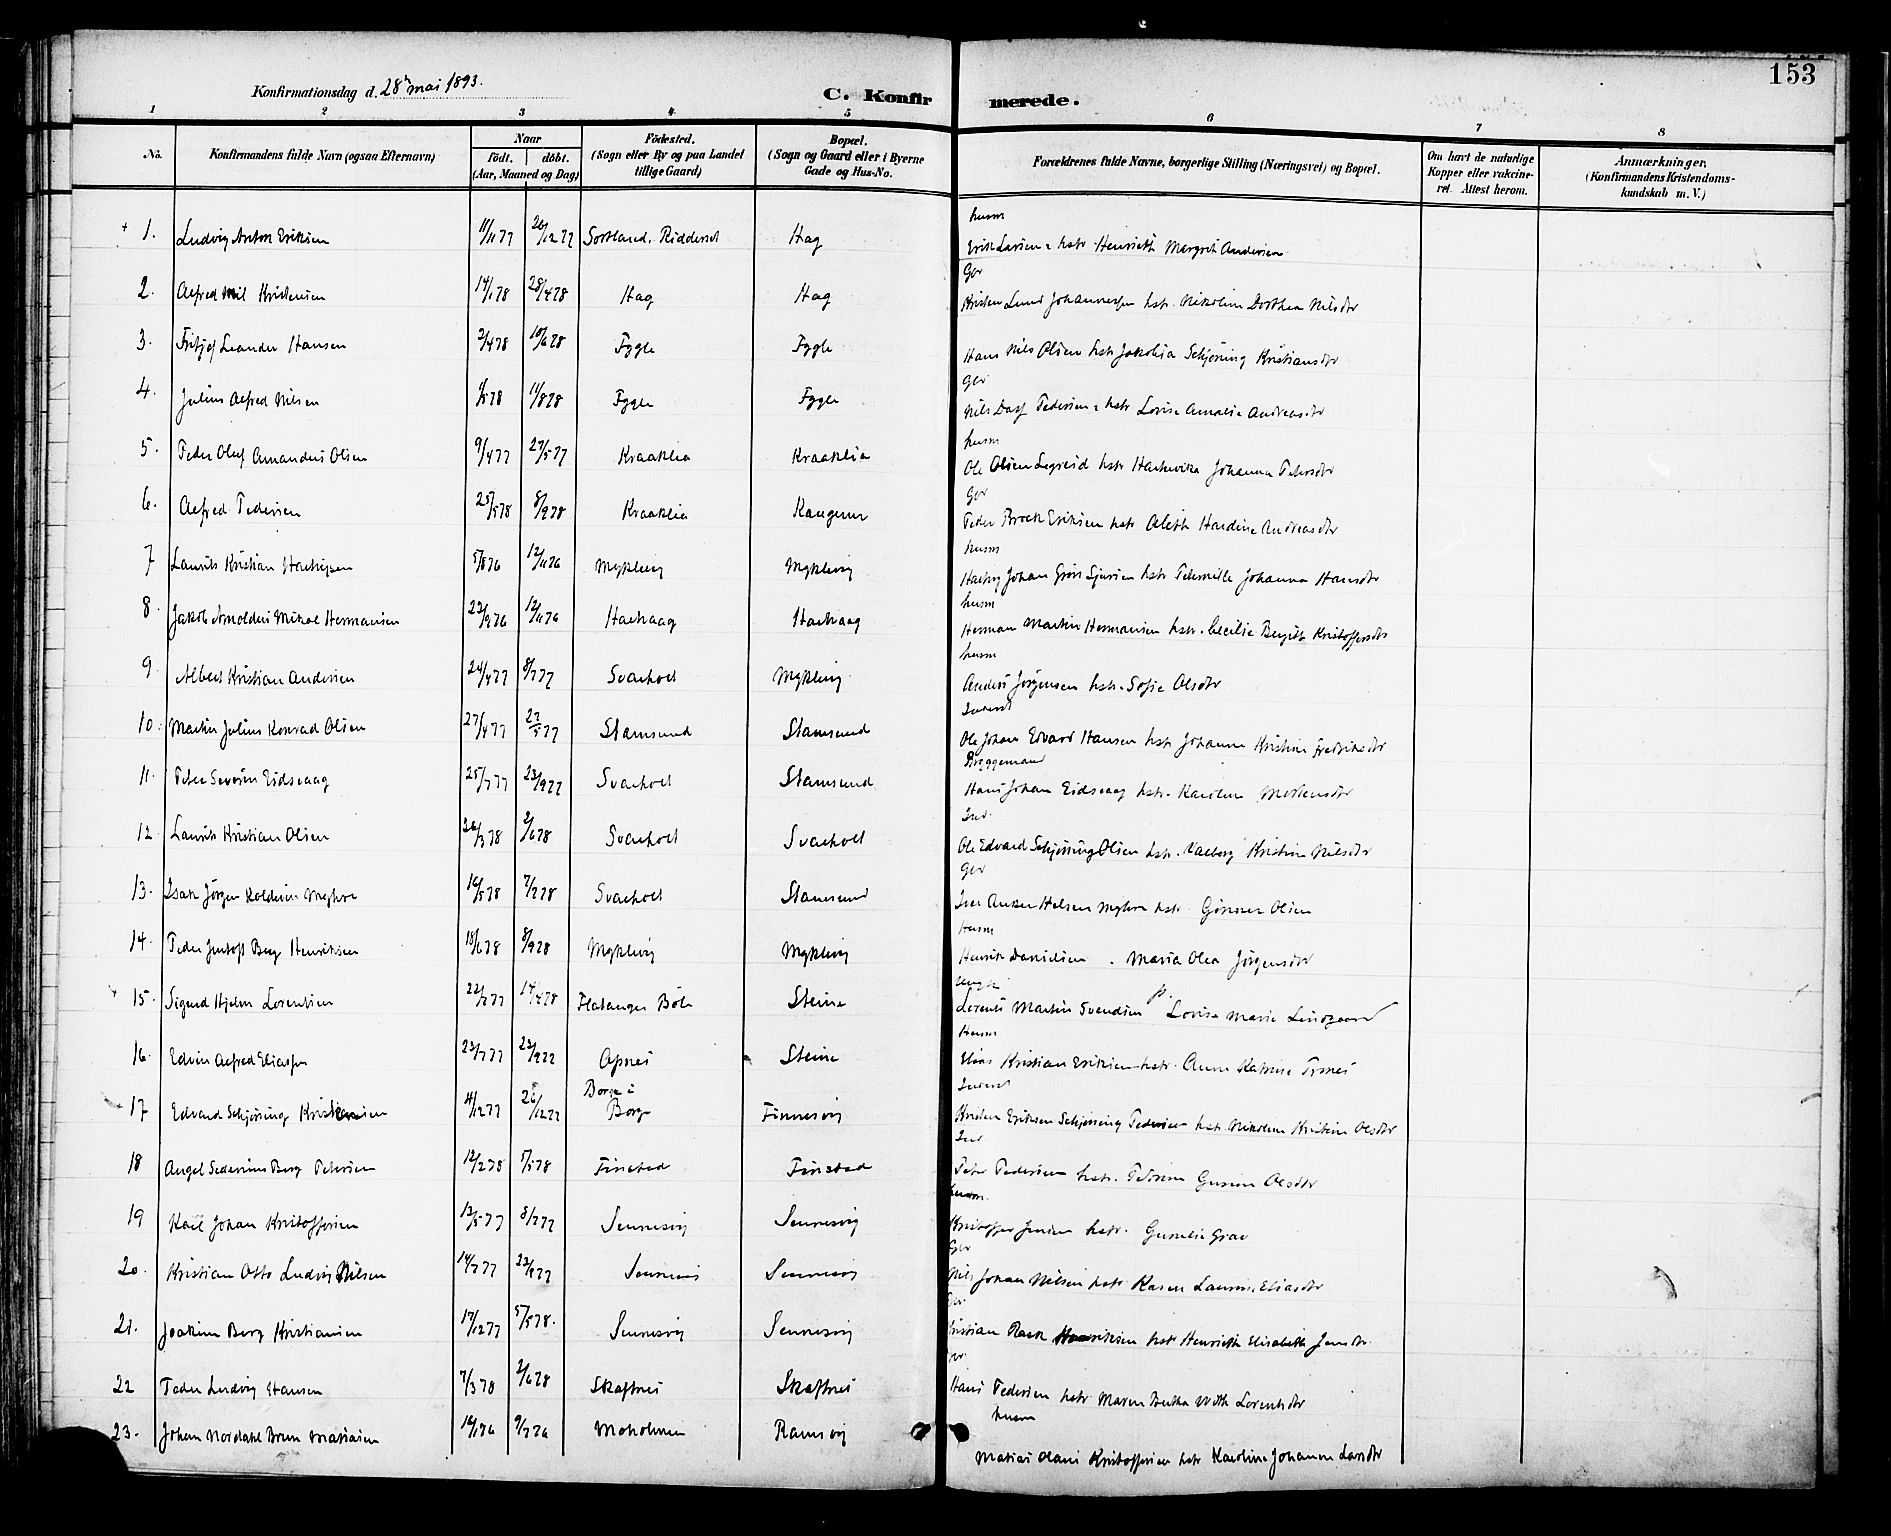 153
Konfirmationsdag d. 28de mai 1893.
C. Konfir merede.
1 2 3 4 5 6 7 8
No. Konfirmandens fulde Navn (ogsaa Efternavn) Naar født. døbt. (Aar, Maaned og Dag) Fødested. (Sogn eller By og paa Landet tillige Gaard) Bopæl. (Sogn og Gaard eller i Byerne Gade og Hus-No. Forældrenes fulde Navne, borgerlige Stilling (Næringsvei) og Bopæl. Om havt de naturlige Kopper eller vakcineret. Attest herom. Anmærkninger, (Konfirmandens Kristendomskundskab m. V.)
husm
1. Ludvig Anton Eriksen 11/11 77 26/12 77 Sortland, Hag Erik Larsen hstr Henriette Margret Andersen
Gbr
2. Alfred Kristensen 14/1 78 28/4 78 Hag Hag Kristen Lund Johannessen hstr. Nikoline Dorthea Nilsdtr
3. Fritjof Leander Hansen 2/4 78 10/6 78 Fygle Fygle Hans Nils Olsen hstr Jakobia Schjøning Kristiansdtr
Gbr
4. Julius Alfred Nilsen 11/8 78 Fygle Fygle Nils Pedersen hstr Lovise Amalie Andreasdtr
husm
5. Peder Oluf Amandus Olsen 9/4 77 27/5 77 Kraaklia Kraaklia Ole Olsen hstr Johanna Petersdtr
Gbr
6. Alfred Pedersen 25/5 78 8/9 78 Kraaklia Peder Brock Eriksen hstr Aleth Hardine Andreasdtr
husm
7 Laurits Kristian Hartvigsen 5/8 76 12/11 76 Myklevig Myklevig Hartvig Johan hstr Petermille Johanna Hansdtr
husm
8. Jakob Arnoldus Mikal Hermansen 23/9 76 12/11 76 Haehaag Haehaag Herman Martin Hermansen hstr. Cecilie Bergitte Kristoffersdtr
husm
9 Albert Kristian Andersen 24/4 77 8/7 77 Svarholt Myklevig Anders Jørgensen hstr. Sofie Olsdtr
Inderst
10. Martin Julius Konrad Olsen 27/4 77 27/5 77 Stamsund Stamsund Ole Johan Edvard Hansen hstr Johanna Kristine Fredriksdtr
Bryggemand
11. Peter Severin Eidsvaag 25/7 77 23/9 77 Svarholt Stamsund Hans Johan Eidsvaag hstr. Karoline Mortensdtr
Ind.
12 Laurits Kristian Olsen 26/3 78 2/6 78 Svarholt Svarholt Ole Edvard Schjøning Olsen hstr. Valborg Kristine Nilsdtr
Gbr
13. Isak Jørgen 16/5 78 7/7 78 Svarholt Stamsund Iver Anker hstr. Olsen
Husm
14. Peder Jentoft Berg Henriksen 18/6 78 8/9 78 Myklevig Myklevig Henrik Danielsen . Maria Olea Jørgensdtr
15. Sigurd Hjelm Lorentsen 22/7 77 14/4 78 Flatanger Steine Lorents Martin Svendsen p. Lovise Marie
Husm
16. Edvin Alfred Eliassen 23/7 77 23/9 77 Apnes Steine Elias Kristian Eriksen hstr. Anne Katrine
Inderst
17 Edvard Schjøning Kristensen 4/12 77 26/12 77 Borge i Borge Finnesvig Kristen Eriksen Schjøning Pedersen hstr. Nikoline Kristine Olsdtr
Ind
18 Angel Sederius Berg Petersen 12/2 78 5/5 78 Finstad Finstad Peter Pedersen hstr. Petrine Olsdtr
husm.
19 Karl Johan Kristoffersen 13/5 77 8/7 77 Sennesvig Sennesvig Kristoffer Jensen hstr. Gunelie Grav
Gbr
20. Kristian Otto Ludvig Nilsen 14/7 77 23/9 77 Sennesvig Sennesvig Nils Johan Nilsen hstr Karen Eliasdtr
Gbr
21. Joakim Berg Kristiansen 17/12 77 5/5 78. Sennesvig Sennesvig Kristian Rask Henriksen hstr Henriette Elisabeth Jensdtr.
Gbr
22 Peder Ludvig Hansen 7/3 78 2/6 78 Skaftnes Skaftnes Hans Pedersen hstr Maren Lorentsdtr
husm
23. Johan Nordahl Brun Matiasen 16/1 76 9/7 76 Moholmen Ramsvig Matias Olaus Kristoffersen hstr Karoline Johanna Larsdtr